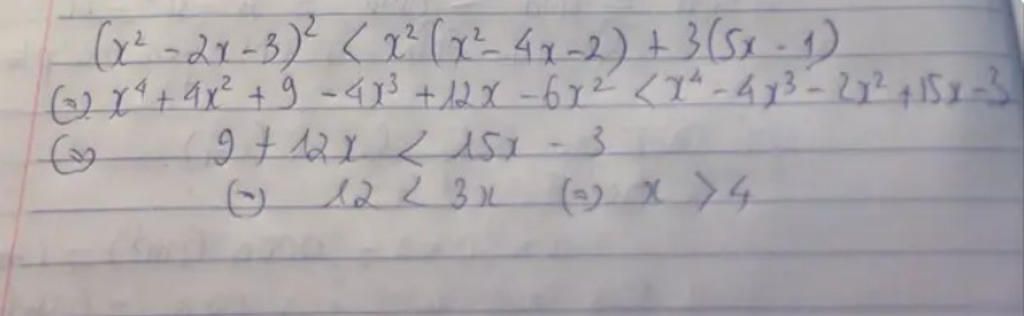 (x² - 2x - 3)² < x²(x² - 4x - 2) + 3(5x - 1)
(=) x⁴ + 4x² + 9 - 4x³ + 12x - 6x² < x⁴ - 4x³ - 2x² + 15x - 3
(=) 9 + 12x < 15x - 3
(=) 12 < 3x (=) x > 4